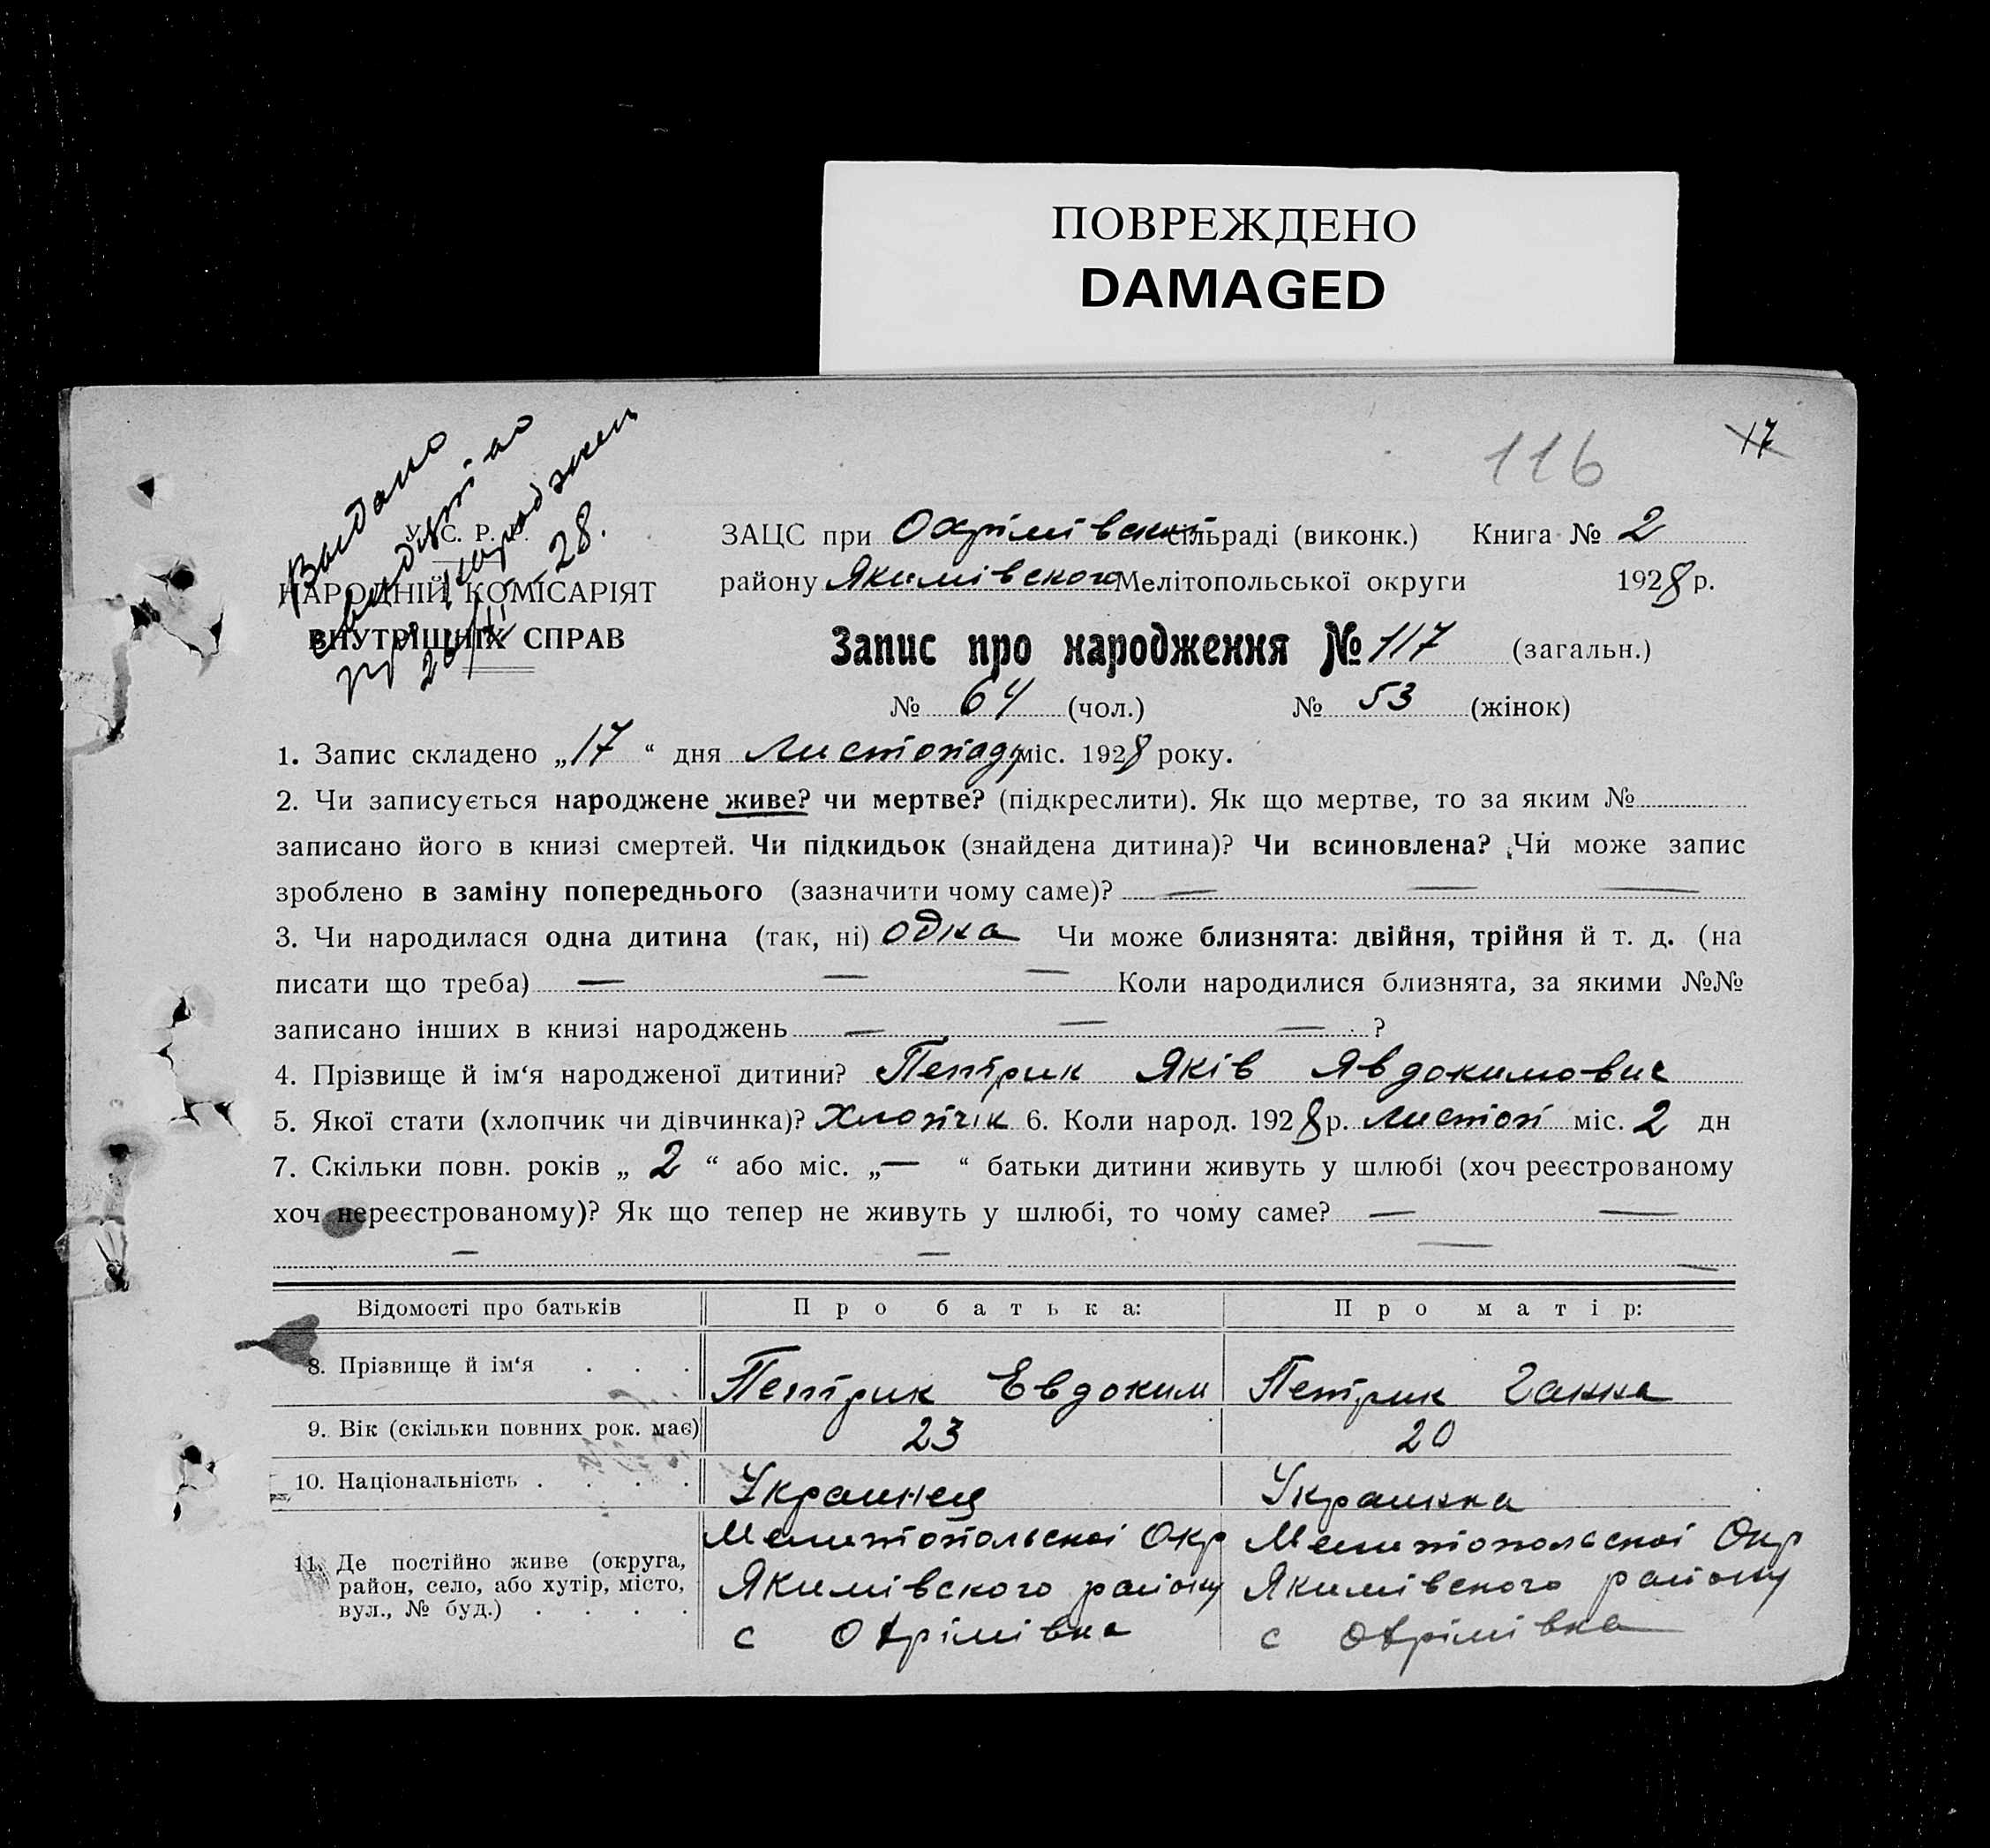 ПОВРЕЖДЕНО
DAMAGED
116
17
Видано
свидоцтво
про народжен
28.
У. С. Р. Р.
НАРОДНІЙ КОМІСАРІЯТ
ВНУТРІШНІХ СПРАВ
ЗАЦС при Охрімівській сільраді (виконк.) Книга № 2
району Якимівского Мелітопольської округи 1928 р.
Запис про народження № 117 (загальн.)
№ 64 (чол.) № 53 (жінок)
1. Запис складено „17“ дня Листопаду міс. 1928 року.
2. Чи записується народжене живе? чи мертве? (підкреслити). Як що мертве, то за яким №
записано його в книзі смертей. Чи підкидьок (знайдена дитина)? Чи всиновлена? Чи може запис
зроблено в заміну попереднього (зазначити чому саме)? — — —
3. Чи народилася одна дитина (так, ні) одна Чи може близнята: двійня, трійня й т. д. (на
писати що треба) — — — Коли народилися близнята, за якими №№
записано інших в книзі народжень — — — ?
4. Прізвище й ім‘я народженої дитини? Петрик Яків Явдокимович
5. Якої стати (хлопчик чи дівчинка)? Хлопчік 6. Коли народ. 1928 р. листоп міс. 2 дн
7. Скільки повн. років „ 2 “ або міс. „—“ батьки дитини живуть у шлюбі (хоч реєстрованому
хоч нереєстрованому)? Як що тепер не живуть у шлюбі, то чому саме? — —
— — — —
Відомості про батьків Про батька: Про матір:
8. Прізвище й ім‘я . . . Петрик Евдоким Петрик Ганна
9. Вік (скільки повних рок. має) 23 20
10. Національність . . . . Украинец Украинка
11. Де постійно живе (округа, район, село, або хутір, місто, вул., № буд.) . . . .
Мелитопольскоі Окр
Якимівского району
с Охрімівка
Мелитопольскоі Окр
Якимівского району
с Охрімівка